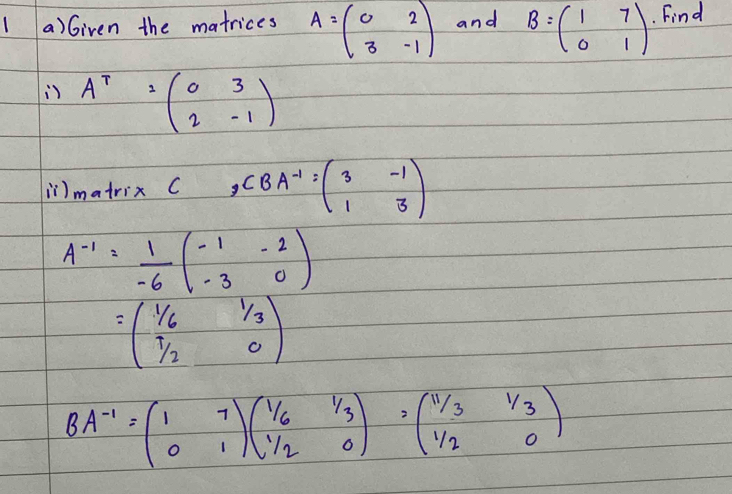 1 a) Given the matrices A = (0 2; 3 -1) and B = (1 7; 0 1). Find
i) Aᵀ = (0 3; 2 -1)
ii) matrix C , CBA⁻¹ = (3 -1; 1 3)
A⁻¹ = 1/-6 (-1 -2; -3 0)
= (1/6 1/3; 1/2 0)
BA⁻¹ = (1 7; 0 1)(1/6 1/3; 1/2 0) = (11/3 1/3; 1/2 0)